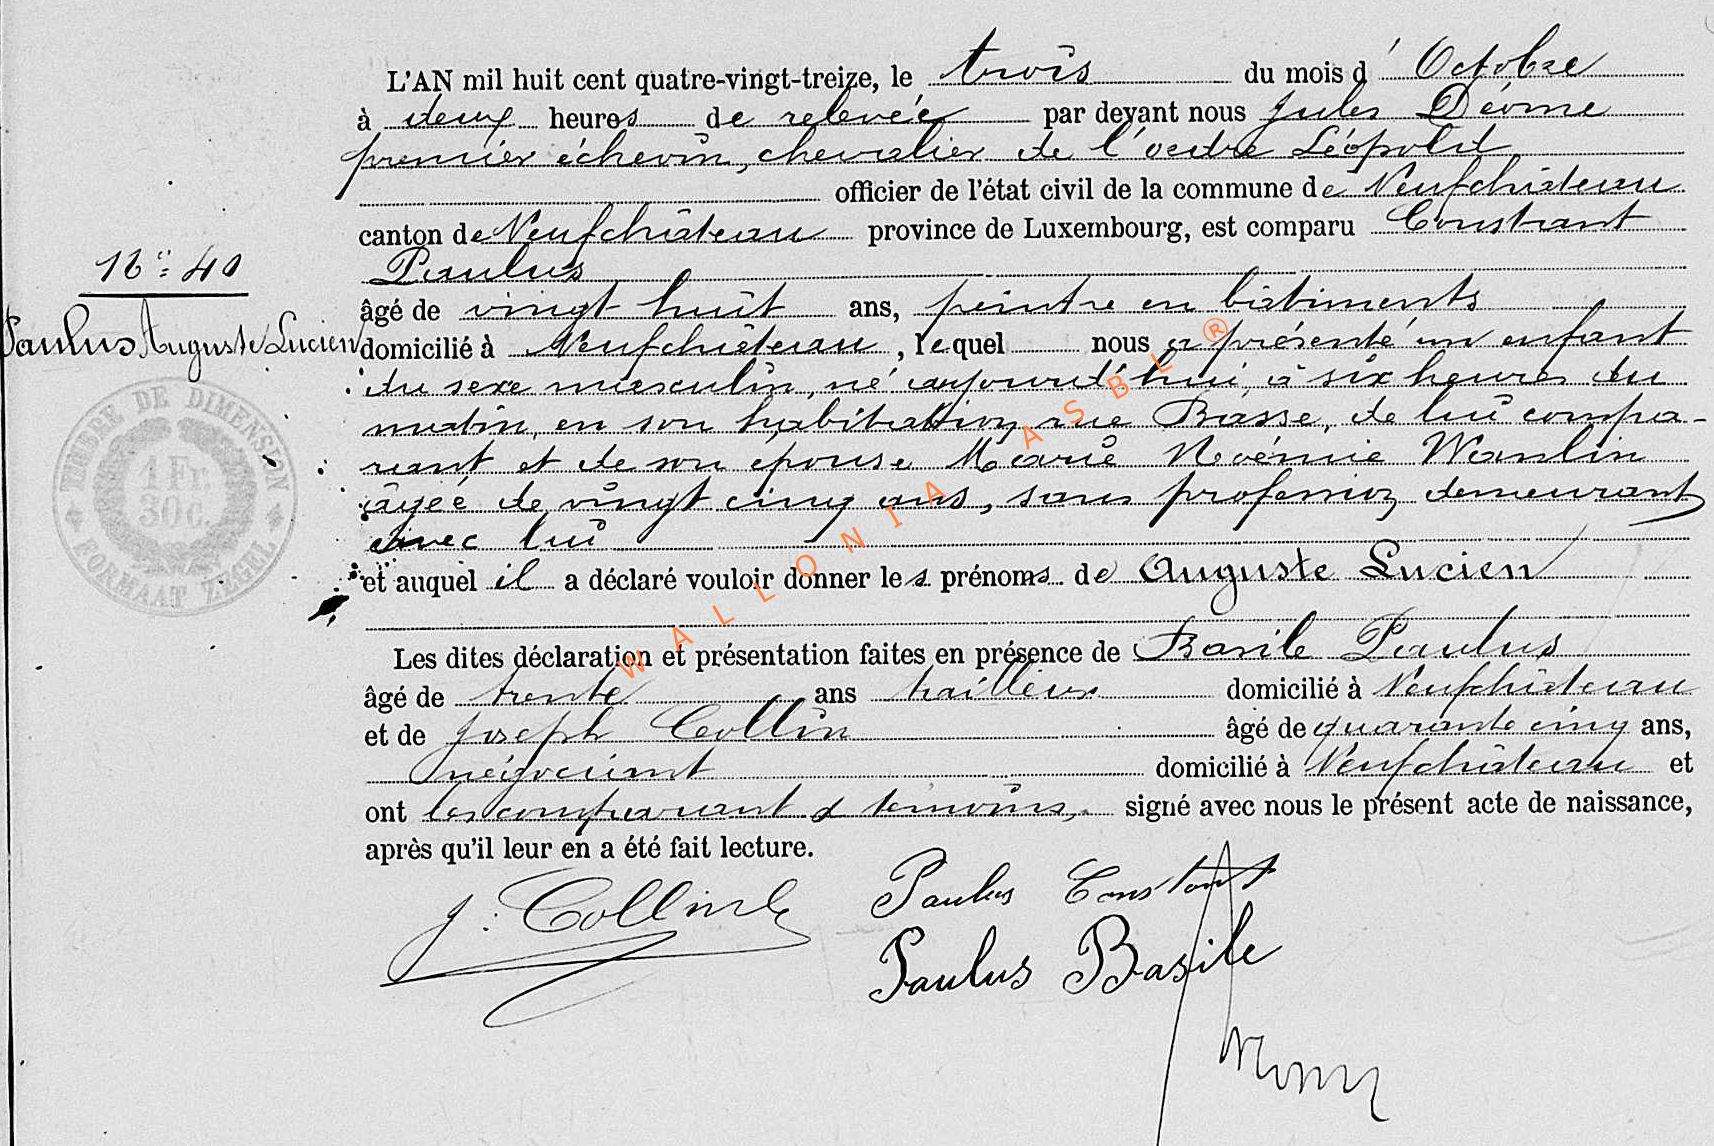 L'AN mil huit cent quatre-vingt-treize, le trois du mois d'Octobre
à deux heures de relevée par devant nous Jules Déome
premier échevin, chevalier de l'ordre Léopold
officier de l'état civil de la commune de Neufchâteau
canton de Neufchâteau province de Luxembourg, est comparu Constant
Paulus
âgé de vingt huit ans, peintre en bâtiments
domicilié à Neufchâteau, lequel nous a présenté un enfant
du sexe masculin, né aujourd'hui, à six heures du
matin, en son habitation, rue Basse, de lui compa-
rant et de son épouse Marie Noémie Wanlin
âgée de vingt cinq ans, sans profession, demeurant
avec lui
et auquel il a déclaré vouloir donner les prénoms de Auguste Lucien
Les dites déclaration et présentation faites en présence de Basile Paulus
âgé de trente ans tailleur domicilié à Neufchâteau
et de Joseph Collin âgé de quarante cinq ans,
négociant domicilié à Neufchâteau et
ont les comparant & témoins, signé avec nous le présent acte de naissance,
après qu'il leur en a été fait lecture.
N° 40
Paulus Auguste Lucien
TIMBRE DE DIMENSION
1 Fr.
30 C.
FORMAAT ZEGEL
WALLONIA ASBL ®
J. Collin
Paulus Constant
Paulus Basile